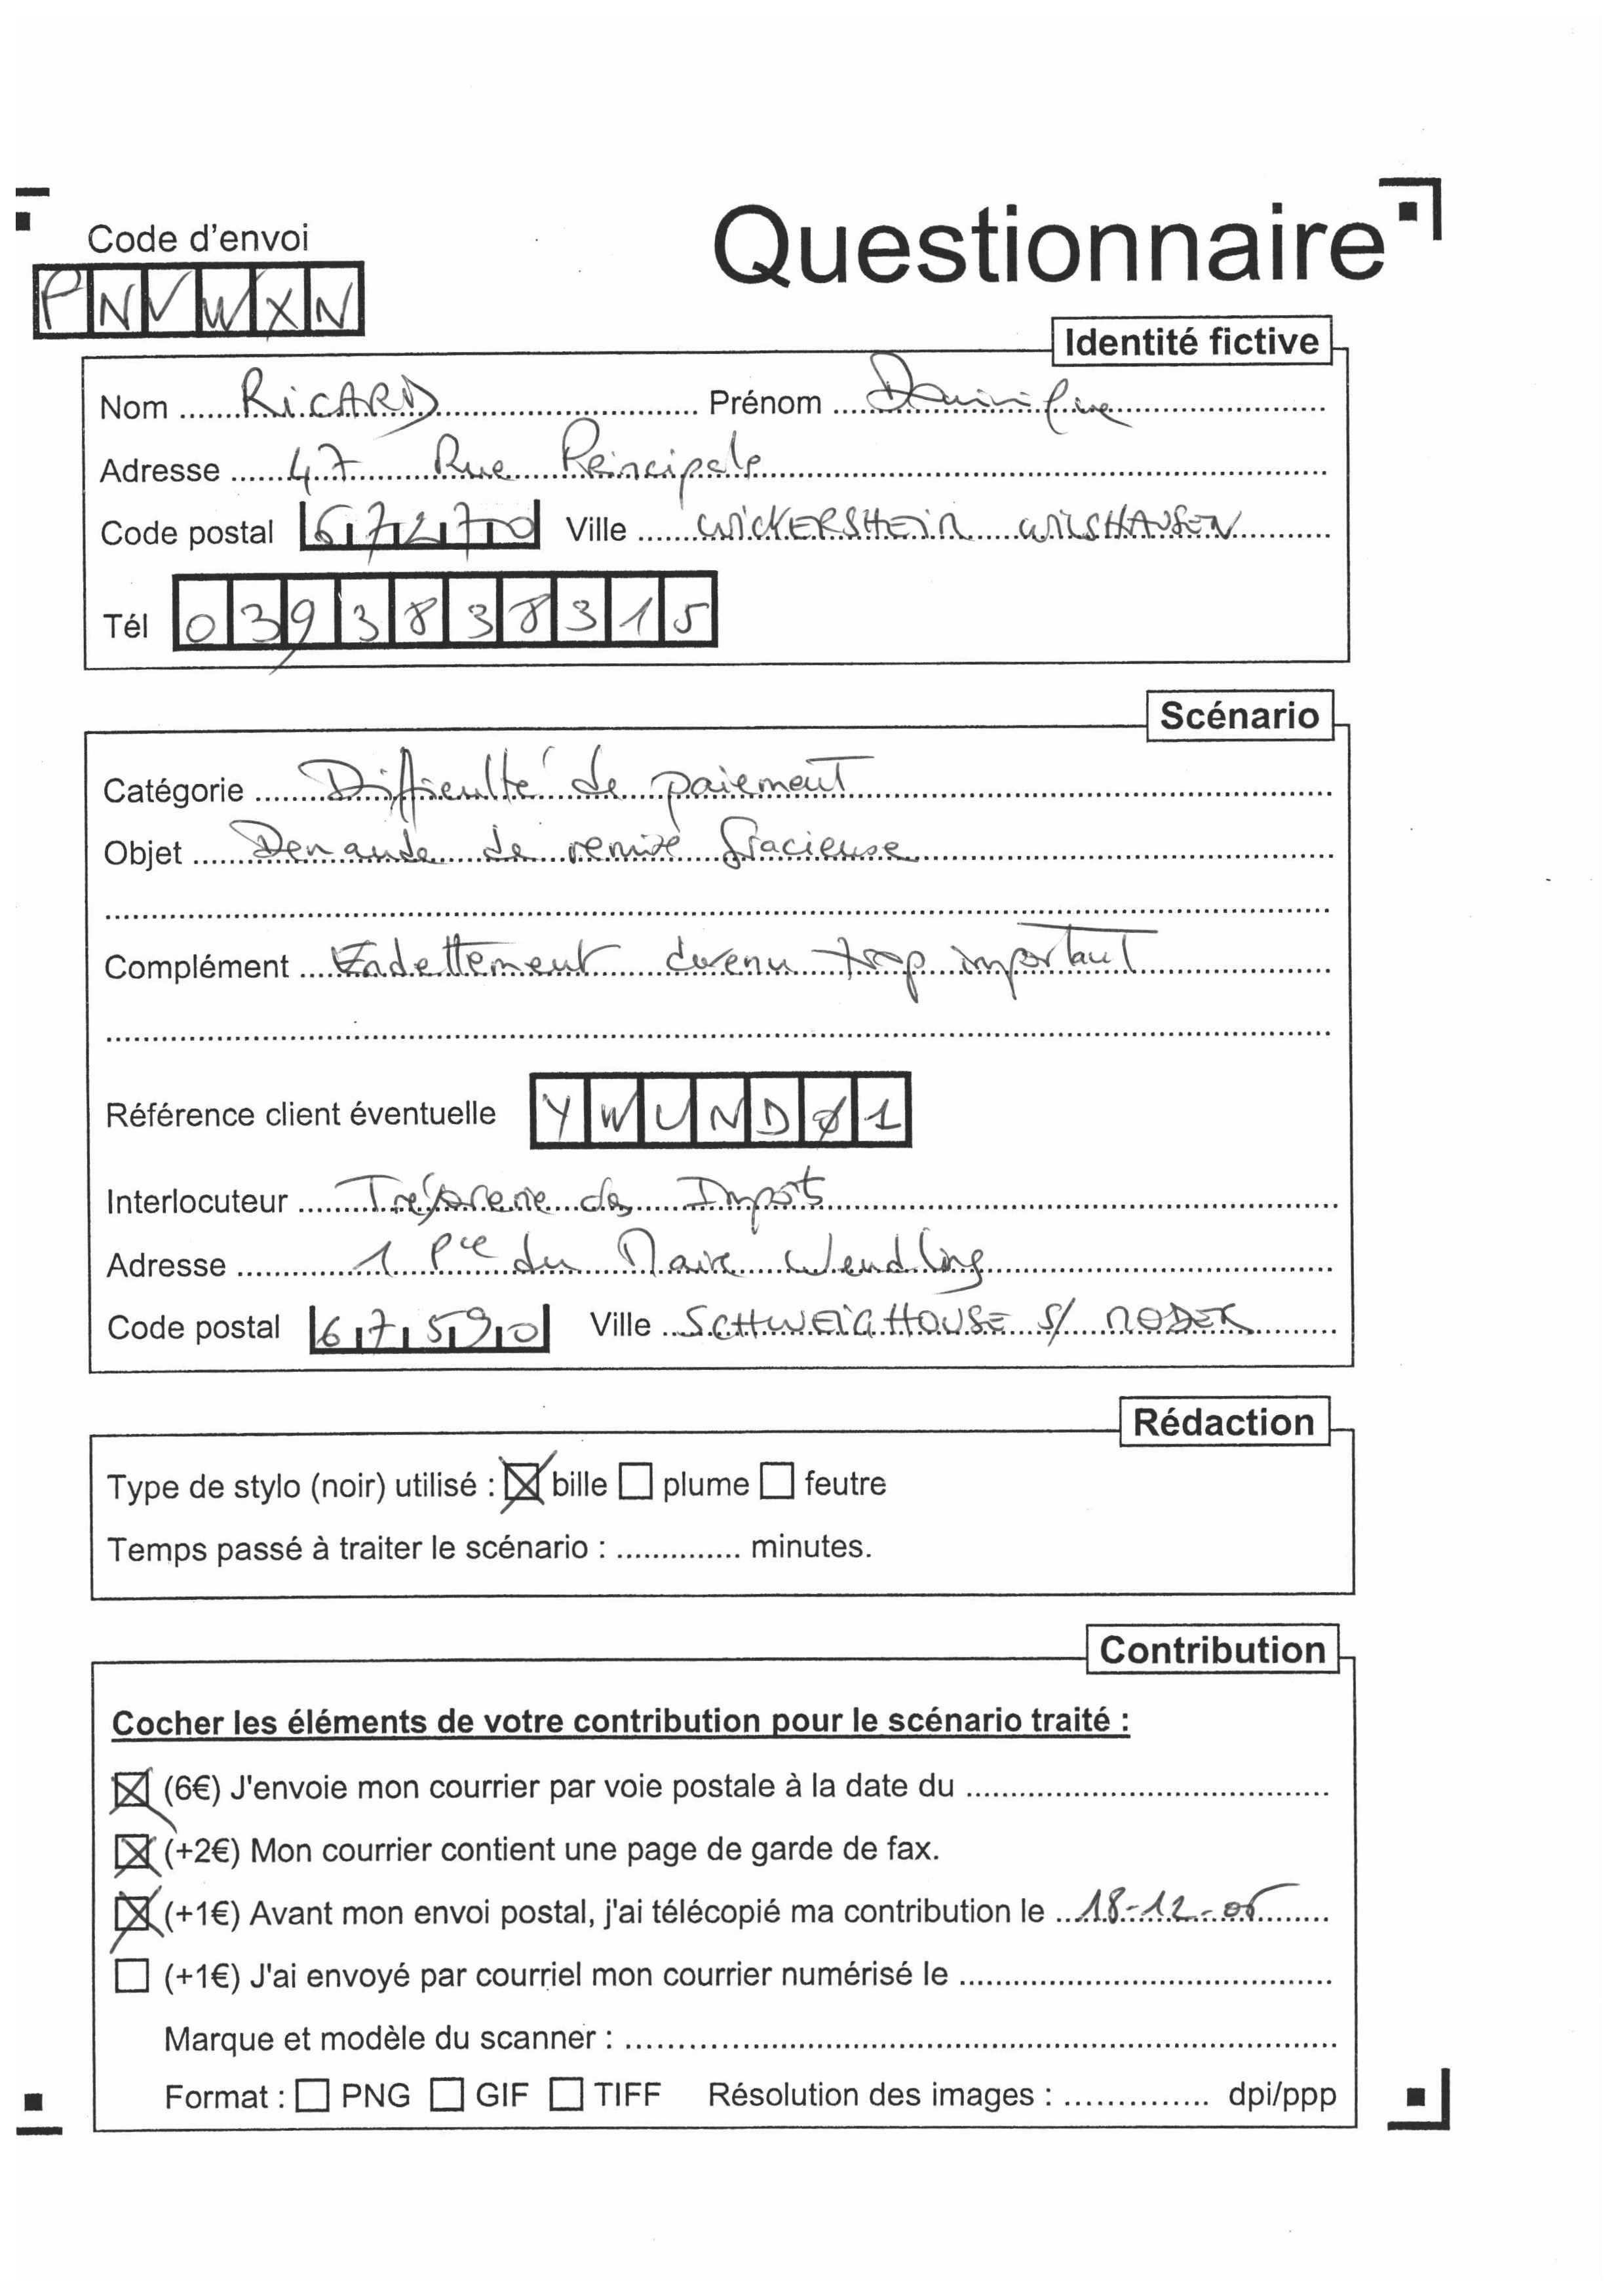 Questionnaire
Code d'envoi
PNVWXN
Identité fictive
Nom ...... RiCARD ...... Prénom ...... Dominique ......
Adresse ...... 47 Rue Principale ......
Code postal 67270 Ville ...... WiCKERSHEiM WILSHAUSEN ......
Tél 0393838315
Scénario
Catégorie ...... Difficulté de paiement ......
Objet ...... Demande de remise gracieuse ......
Complément ...... Endettement devenu trop important ......
Référence client éventuelle YWUNDØ1
Interlocuteur ...... Trésorerie des Impôts ......
Adresse ...... 1 Pce du Maire Wendling ......
Code postal 67590 Ville ...... SCHWEiGHOUSE S/ MODER ......
Rédaction
Type de stylo (noir) utilisé : ☒ bille ☐ plume ☐ feutre
Temps passé à traiter le scénario : .............. minutes.
Contribution
Cocher les éléments de votre contribution pour le scénario traité :
☒ (6€) J'envoie mon courrier par voie postale à la date du ......
☒ (+2€) Mon courrier contient une page de garde de fax.
☒ (+1€) Avant mon envoi postal, j'ai télécopié ma contribution le ... 18-12-06 ......
☐ (+1€) J'ai envoyé par courriel mon courrier numérisé le ......
Marque et modèle du scanner : ......
Format : ☐ PNG ☐ GIF ☐ TIFF Résolution des images : .............. dpi/ppp